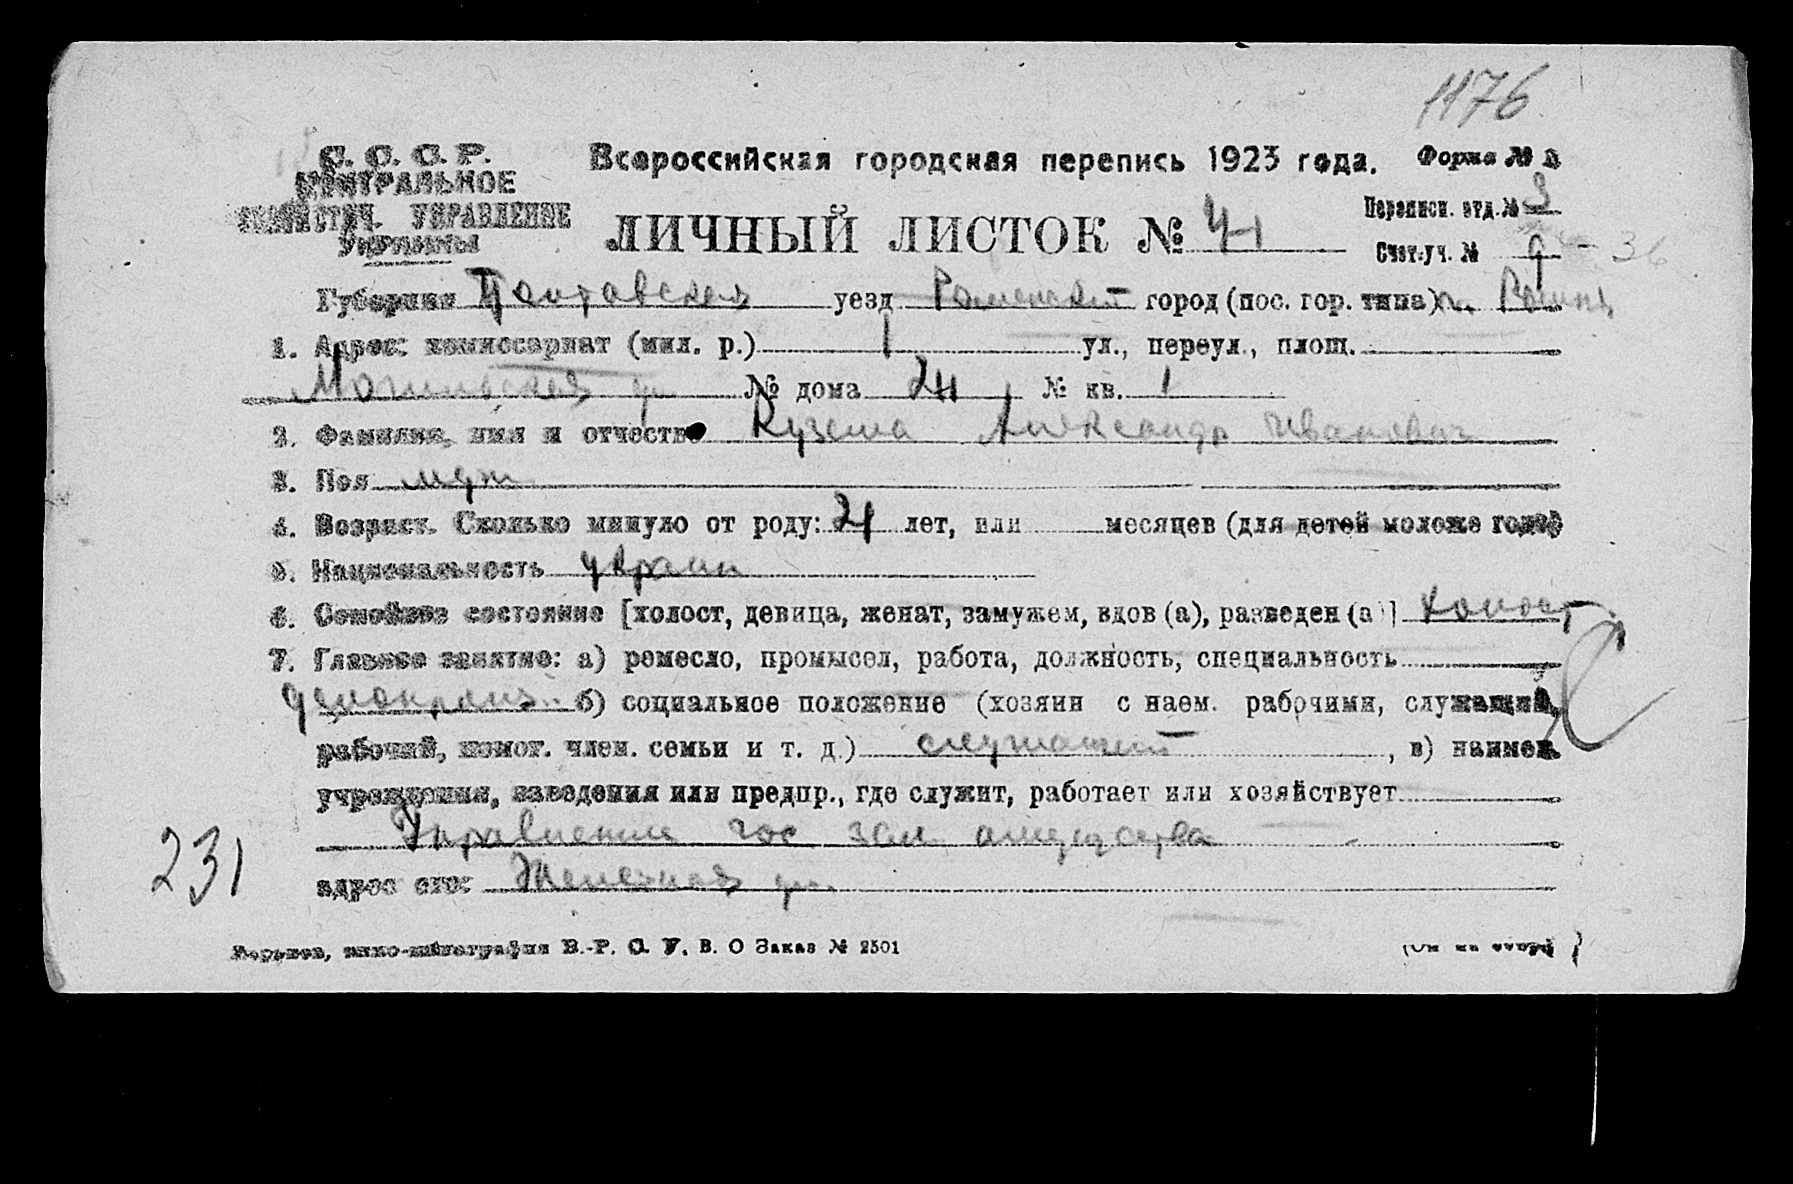 1176
С. С. С. Р.
ЦЕНТРАЛЬНОЕ
СТАТИСТИЧ. УПРАВЛЕНИЕ
УКРАИНЫ
Всероссийская городская перепись 1923 года. Форма №
ЛИЧНЫЙ ЛИСТОК №
Переписн. отд. № 3
Счет. уч. № 9 - 36
Губерния Полтавская уезд Роменский город (пос. гор. типа) г. Ромны
1. Адрес: комиссариат (мил. р.) 1 ул., переул., площ.
№ дома № кв. 1
2. Фамилия, имя и отчество Кузема Александр Иванович
3. Пол муж
4. Возраст. Сколько минуло от роду: 21 лет, или месяцев (для детей моложе года)
5. Национальность украин
6. Семейное состояние [холост, девица, женат, замужем, вдов (а), разведен (а)] холост
7. Главное занятие: а) ремесло, промысел, работа, должность, специальность
делопроиз. б) социальное положение (хозяин с наем. рабочими, служащий,
рабочий, помог. член. семьи и т. д.) служащий, в) наимен.
учреждения, заведения или предпр., где служит, работает или хозяйствует
Управление гос зем имущества
231
адрес его: ул.
Харьков, типо-литография В.-Р. С. У. В. О Заказ № 2501